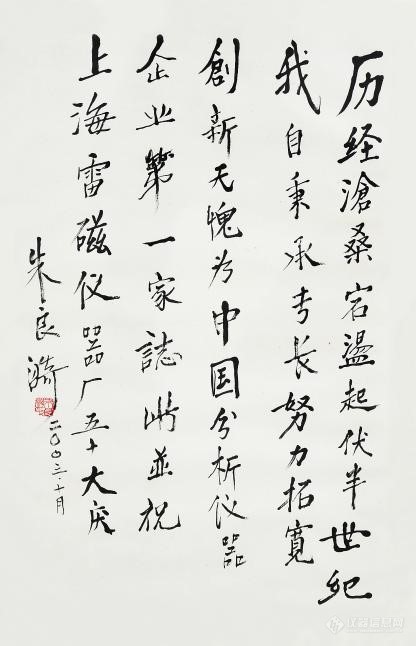 历经滄桑宕盪起伏半世纪
我自秉承专长努力拓寬
創新无愧为中国分析仪器
企业第一家誌此並祝
上海雷磁仪器厂五十大庆
朱良漪
二〇〇三.十月
仪器信息网